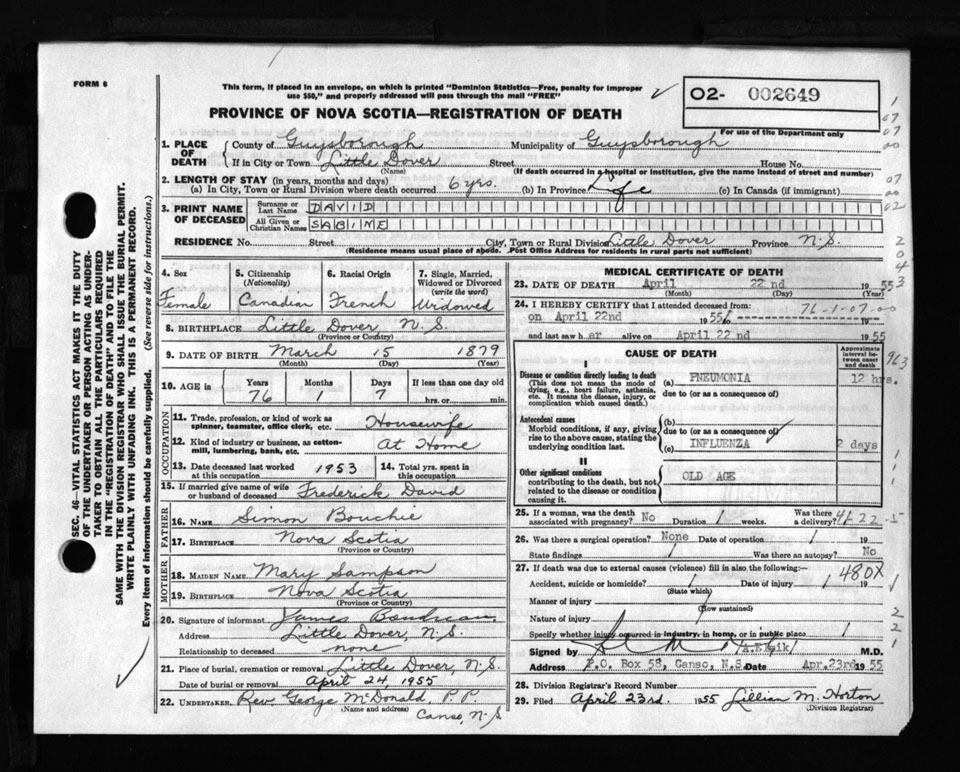 FORM 6
This form, if placed in an envelope, on which is printed "Dominion Statistics—Free, penalty for improper
use $50," and properly addressed will pass through the mail "FREE"
O2- 002649
PROVINCE OF NOVA SCOTIA—REGISTRATION OF DEATH
For use of the Department only
1. PLACE OF DEATH County of Guysborough Municipality of Guysborough
If in City or Town Little Dover Street House No.
(Name) (If death occurred in a hospital or institution, give the name instead of street and number)
2. LENGTH OF STAY (in years, months and days)
(a) In City, Town or Rural Division where death occurred 6 yrs. (b) In Province Life (c) In Canada (if immigrant)
3. PRINT NAME OF DECEASED Surname or Last Name DAVID
All Given or Christian Names SABINE
RESIDENCE No. Street City, Town or Rural Division Little Dover Province N.S.
(Residence means usual place of abode. Post Office Address for residents in rural parts not sufficient)
4. Sex Female
5. Citizenship (Nationality) Canadian
6. Racial Origin French
7. Single, Married, Widowed or Divorced (write the word) Widowed
8. BIRTHPLACE Little Dover N.S.
(Province or Country)
9. DATE OF BIRTH March 15 1879
(Month) (Day) (Year)
10. AGE in Years 76 Months 1 Days 7 If less than one day old hrs. or min.
OCCUPATION
11. Trade, profession, or kind of work as spinner, teamster, office clerk, etc. Housewife
12. Kind of industry or business, as cotton-mill, lumbering, bank, etc. At Home
13. Date deceased last worked at this occupation 1953
14. Total yrs. spent in this occupation
15. If married give name of wife or husband of deceased Frederick David
FATHER
16. NAME Simon Bouchie
17. BIRTHPLACE Nova Scotia
(Province or Country)
MOTHER
18. MAIDEN NAME Mary Sampson
19. BIRTHPLACE Nova Scotia
(Province or Country)
20. Signature of informant James Boudreau
Address Little Dover, N.S.
Relationship to deceased none
21. Place of burial, cremation or removal Little Dover, N.S.
Date of burial or removal April 24 1955
22. UNDERTAKER Rev. George McDonald, P.P.
(Name and address) Canso, N.S
MEDICAL CERTIFICATE OF DEATH
23. DATE OF DEATH April 22 nd 1955
(Month) (Day) (Year)
24. I HEREBY CERTIFY that I attended deceased from:
on April 22nd 1955 76-1-07-00
and last saw her alive on April 22 nd 1955
CAUSE OF DEATH
Approximate interval between onset and death
I
Disease or condition directly leading to death
(This does not mean the mode of dying, e.g., heart failure, asthenia, etc. It means the disease, injury, or complication which caused death.)
(a) PNEUMONIA 12 hrs.
due to (or as a consequence of)
Antecedent causes
Morbid conditions, if any, giving rise to the above cause, stating the underlying condition last.
(b)
due to (or as a consequence of)
(c) INFLUENZA 2 days
II
Other significant conditions
contributing to the death, but not related to the disease or condition causing it.
OLD AGE
25. If a woman, was the death associated with pregnancy? No Duration / weeks. Was there a delivery?
26. Was there a surgical operation? None Date of operation / 19
State findings / Was there an autopsy? No
27. If death was due to external causes (violence) fill in also the following:— 480X
Accident, suicide or homicide? / Date of injury / 19
(State which)
Manner of injury
(How sustained)
Nature of injury
Specify whether injury occurred in industry, in home, or in public place /
Signed by M.D.
Address P.O. Box 58, Canso, N.S. Date Apr.23rd 1955
28. Division Registrar's Record Number
29. Filed April 23rd. 1955 Lillian M. Horton
(Division Registrar)
SEC. 46—VITAL STATISTICS ACT MAKES IT THE DUTY
OF THE UNDERTAKER OR PERSON ACTING AS UNDER-
TAKER TO OBTAIN ALL THE PARTICULARS REQUIRED
IN THE "REGISTRATION OF DEATH" AND TO FILE THE
SAME WITH THE DIVISION REGISTRAR WHO SHALL ISSUE THE BURIAL PERMIT.
WRITE PLAINLY WITH UNFADING INK. THIS IS A PERMANENT RECORD.
Every item of information should be carefully supplied. (See reverse side for instructions.)